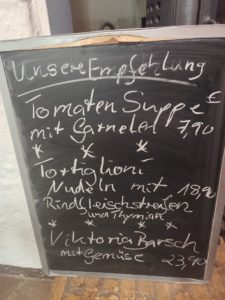 Unsere Empfehlung
Tomaten Suppe €
mit Garnelen 7,90
* * *
Tortiglioni
Nudeln mit 18,90
Rindfleischstreifen
und Thymian
* * *
Viktoria Barsch
mit Gemüse 23,90